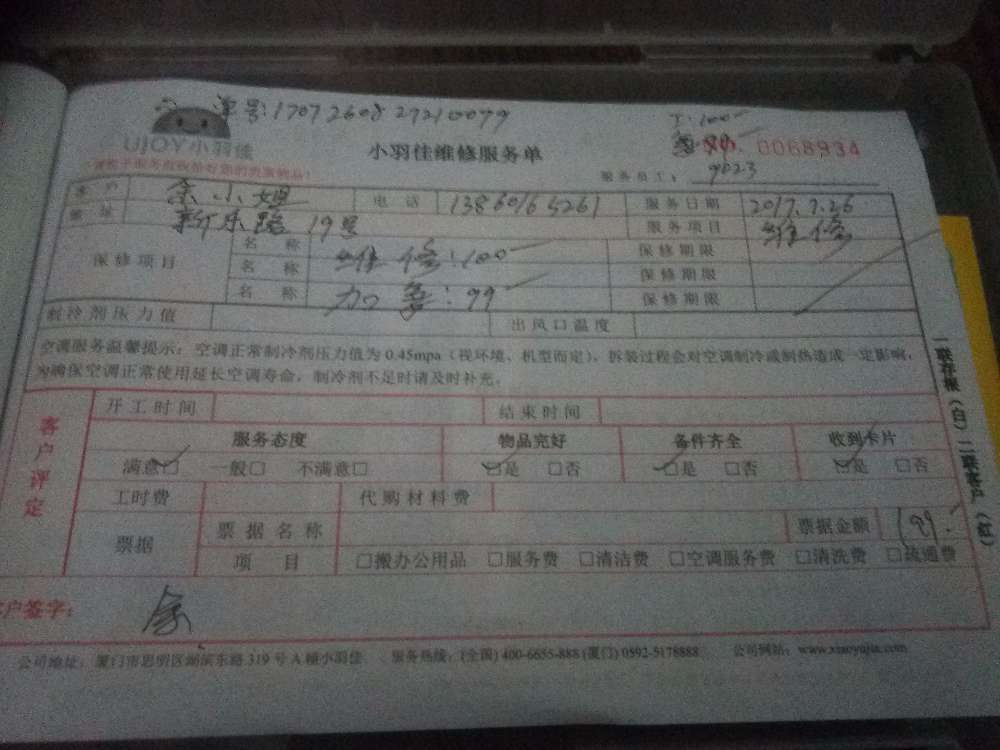 单号:17072608 27210079
UJOY小羽佳
小羽佳维修服务单
丁:100
No. 0068934
服务员工: 9023
客户 余小姐 电话 13860165261 服务日期 2017.7.26
地址 新乐路19号 服务项目 维修
保修项目 名称 维修:100 保修期限
名称 加急:99 保修期限
名称 保修期限
制冷剂压力值 出风口温度
空调服务温馨提示:空调正常制冷剂压力值为0.45mpa(视环境、机型而定),拆装过程会对空调制冷或制热造成一定影响,
为确保空调正常使用延长空调寿命,制冷剂不足时请及时补充。
客户评定
开工时间 结束时间
服务态度 物品完好 备件齐全 收到卡片
满意□ 一般□ 不满意□ □是 □否 □是 □否 □是 □否
工时费 代购材料费
票据 票据名称 票据金额 199.
项目 □搬办公用品 □服务费 □清洁费 □空调服务费 □清洗费 □疏通费
客户签字: 余
公司地址:厦门市思明区湖滨东路319号A幢小羽佳 服务热线:(全国)400-6655-888(厦门)0592-5178888 公司网站:www.xiaoyujia.com
一联存根(白)二联客户(红)